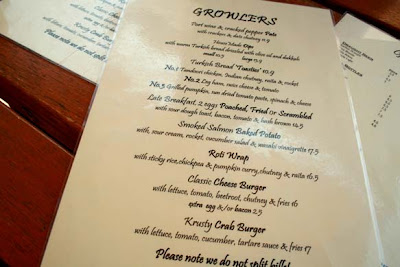 GROWLERS
Port wine & cracked pepper Pate
with crackers & date chutney 12.9
House Made Dips
with warm Turkish bread drizzled with olive oil and dukkah
small 10.5 large 15.9
Turkish Bread 'Toasties' 10.9
No.1 Tandoori chicken, Indian chutney, raita & rocket
No.2 Leg ham, swiss cheese & tomato
No.3 Grilled pumpkin, sun dried tomato pesto, spinach & cheese
Late Breakfast, 2 eggs Poached, Fried or Scrambled
with sour dough toast, bacon, tomato & hash brown 14.5
Smoked Salmon Baked Potato
with, sour cream, rocket, cucumber salad & wasabi vinaigrette 17.5
Roti Wrap
with sticky rice, chickpea & pumpkin curry, chutney & raita 16.5
Classic Cheese Burger
with lettuce, tomato, beetroot, chutney & fries 16
extra egg &/or bacon 2.5
Krusty Crab Burger
with lettuce, tomato, cucumber, tartare sauce & fries 17
Please note we do not split bills
Please note we do